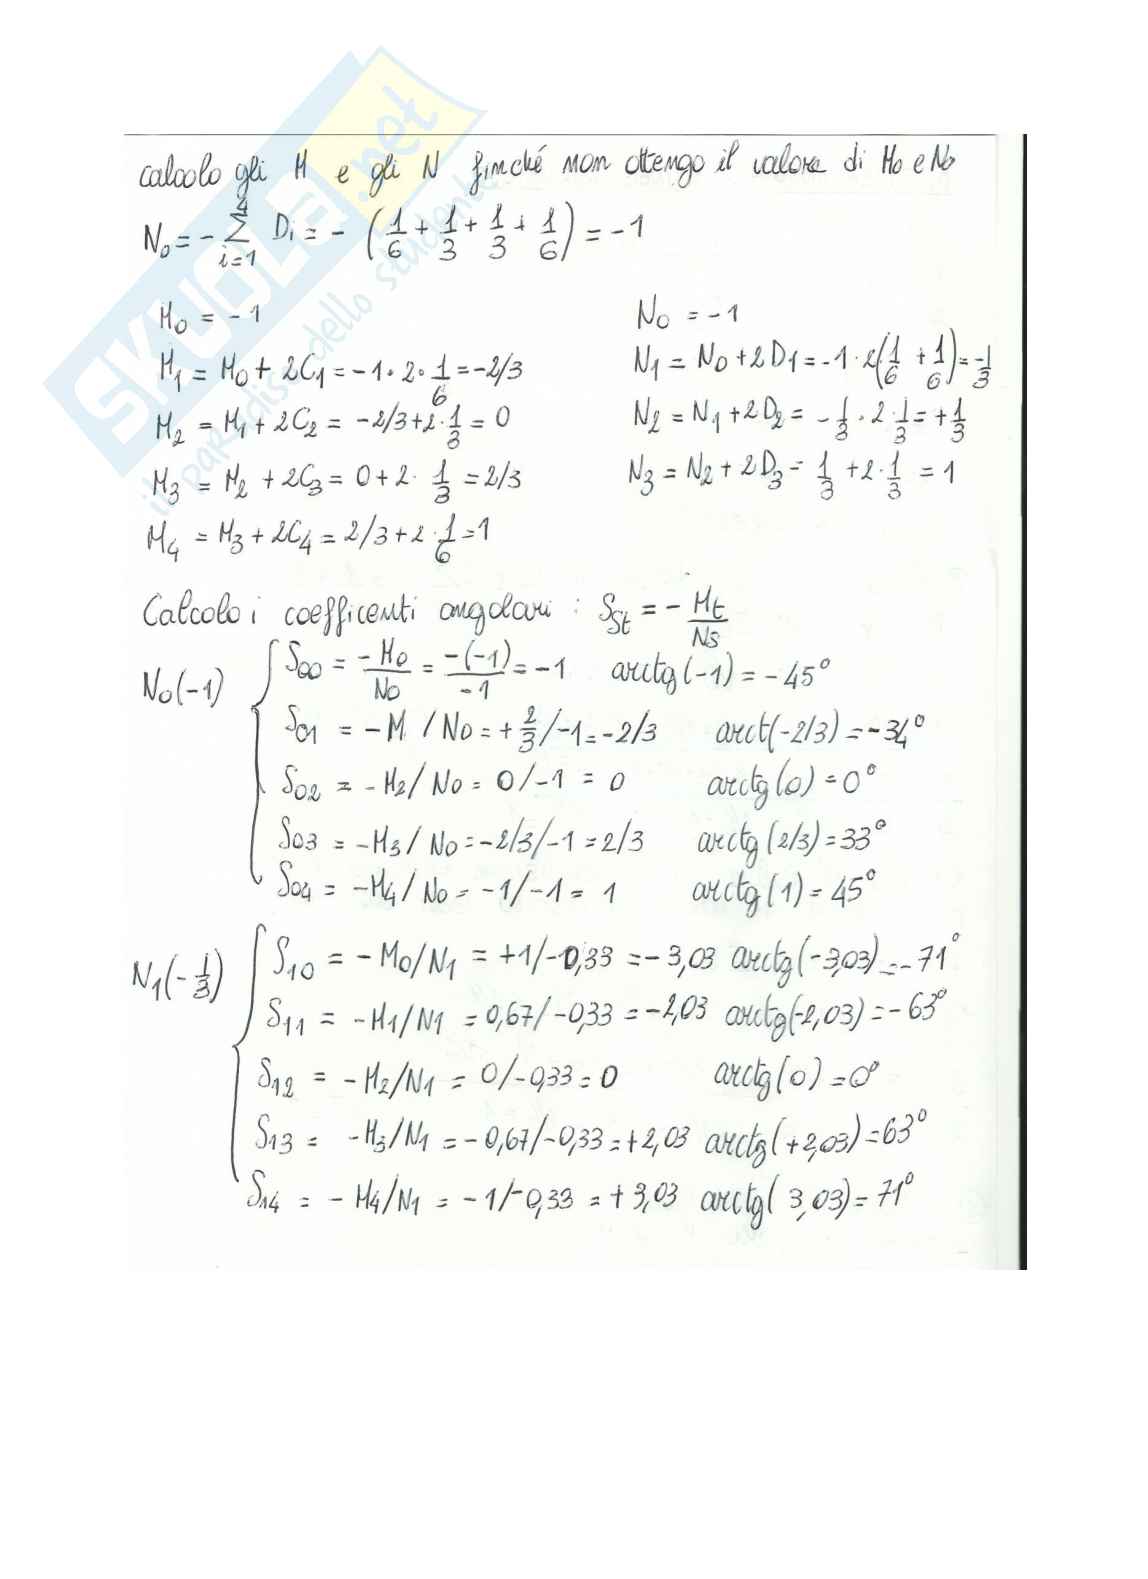 SKUOLA.net
il paradiso dello studente
calcolo gli M e gli N finché non ottengo il valore di M0 e N0
N0 = - Σ i=1 Di = - (1/6 + 1/3 + 1/3 + 1/6) = -1
M0 = -1 N0 = -1
M1 = M0 + 2C1 = -1 · 2 · 1/6 = -2/3 N1 = N0 + 2D1 = -1 · 2(1/6 + 1/6) = -1/3
M2 = M1 + 2C2 = -2/3 + 2 · 1/3 = 0 N2 = N1 + 2D2 = -1/3 · 2 · 1/3 = +1/3
M3 = M2 + 2C3 = 0 + 2 · 1/3 = 2/3 N3 = N2 + 2D3 = 1/3 + 2 · 1/3 = 1
M4 = M3 + 2C4 = 2/3 + 2 · 1/6 = 1
Calcolo i coefficenti angolari : Sst = - Mt/Ns
N0(-1) S00 = -M0/N0 = -(-1)/-1 = -1 arctg(-1) = -45°
S01 = -M / N0 = + 2/3 /-1 = -2/3 arct(-2/3) = -34°
S02 = -M2/N0 = 0/-1 = 0 arctg(0) = 0°
S03 = -M3/N0 = -2/3/-1 = 2/3 arctg(2/3) = 33°
S04 = -M4/N0 = -1/-1 = 1 arctg(1) = 45°
N1(-1/3) S10 = -M0/N1 = +1/-0,33 = -3,03 arctg(-3,03) = -71°
S11 = -M1/N1 = 0,67/-0,33 = -2,03 arctg(-2,03) = -63°
S12 = -M2/N1 = 0/-0,33 = 0 arctg(0) = 0°
S13 = -M3/N1 = -0,67/-0,33 = +2,03 arctg(+2,03) = 63°
S14 = -M4/N1 = -1/-0,33 = +3,03 arctg(3,03) = 71°